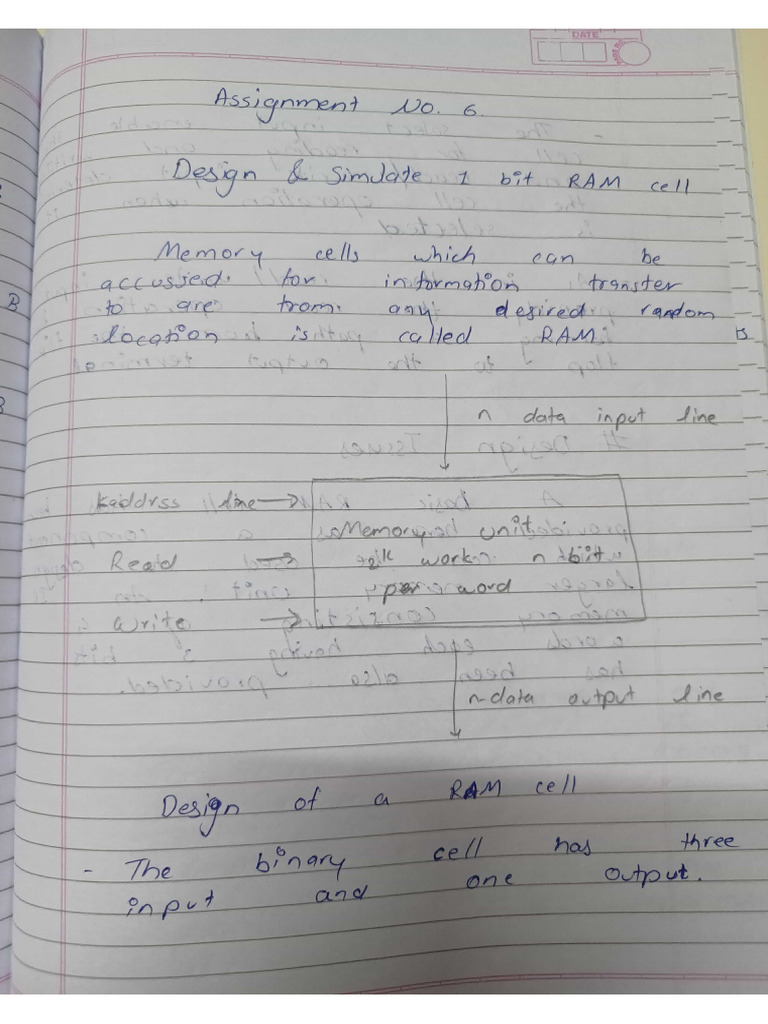 DATE
Assignment No. 6.
Design & Simulate 1 bit RAM cell
Memory cells which can be
accussed for information transfer
to are from any desired random
location is called RAM.
n data input line
kaddrss line
Memory unit
Read
work n bit
per word
Write
n-data output line
Design of a RAM cell
- The binary cell has three
input and one output.